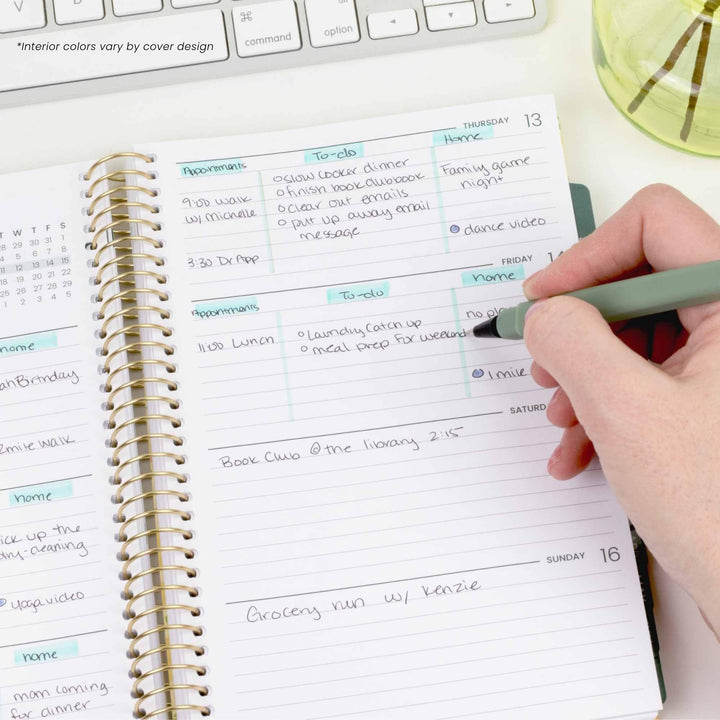 *Interior colors vary by cover design
command
option
T W T F S
28 29 30 31 1
5 6 7 8
11 12 13 14 15
25 26 27 28 29
1 2 3 4 5
home
Birthday
mile walk
home
up the
dry-cleaning
yoga video
home
mom coming
for dinner
THURSDAY 13
Appointments
9:00 walk
w/ michelle
3:30 Dr App
To-do
slow cooker dinner
finish book club book
clear out emails
put up away email
message
Home
Family game
night
dance video
FRIDAY
Appointments
11:00 Lunch
To-do
laundry catch up
meal prep for weekend
home
no
1 mile
Book Club @ the library 2:15
SUNDAY 16
Grocery run w/ Kenzie